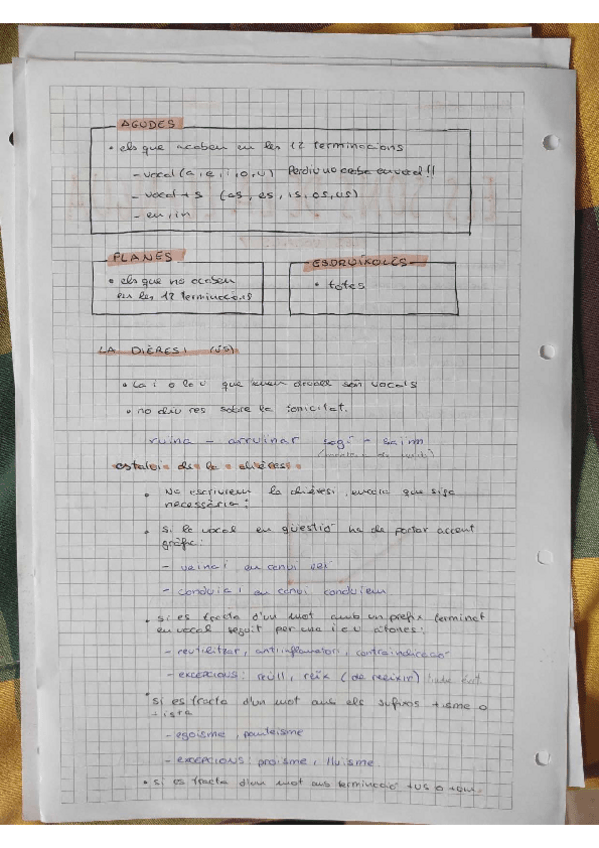 AGUDES
• els que acaben en les 12 terminacions
- vocal (a, e, i, o, u) Perdiu no acaba en vocal!!
- vocal + s (as, es, is, os, us)
- en, in
PLANES
• els que no acaben
en les 12 terminacions
ESDRÚIXOLES
• totes
LA DIÈRESI (ÚS)
• La i o la u que duen damunt són vocals
• no diu res sobre la tonicitat.
ruïna - arruïnar sagí - saïm
estalvi de la dièresi
• No escriurem la dièresi, encara que siga
necessària:
• Si la vocal en qüestió ha de portar accent
gràfic:
- veïna; en canvi veí
- conduïa; en canvi conduíem
• si es tracta d'un mot amb un prefix terminat
en vocal seguit per una i o u àtones:
- reutilitzar, antiinflamatori, contraindicació
- EXCEPCIONS: reüll, reïx (de reeixir)
• si es tracta d'un mot amb els sufixos +isme o
+ista
- egoisme,
- EXCEPCIONS: proïsme, lluïsme.
• si es tracta d'un mot amb terminació +us o +um